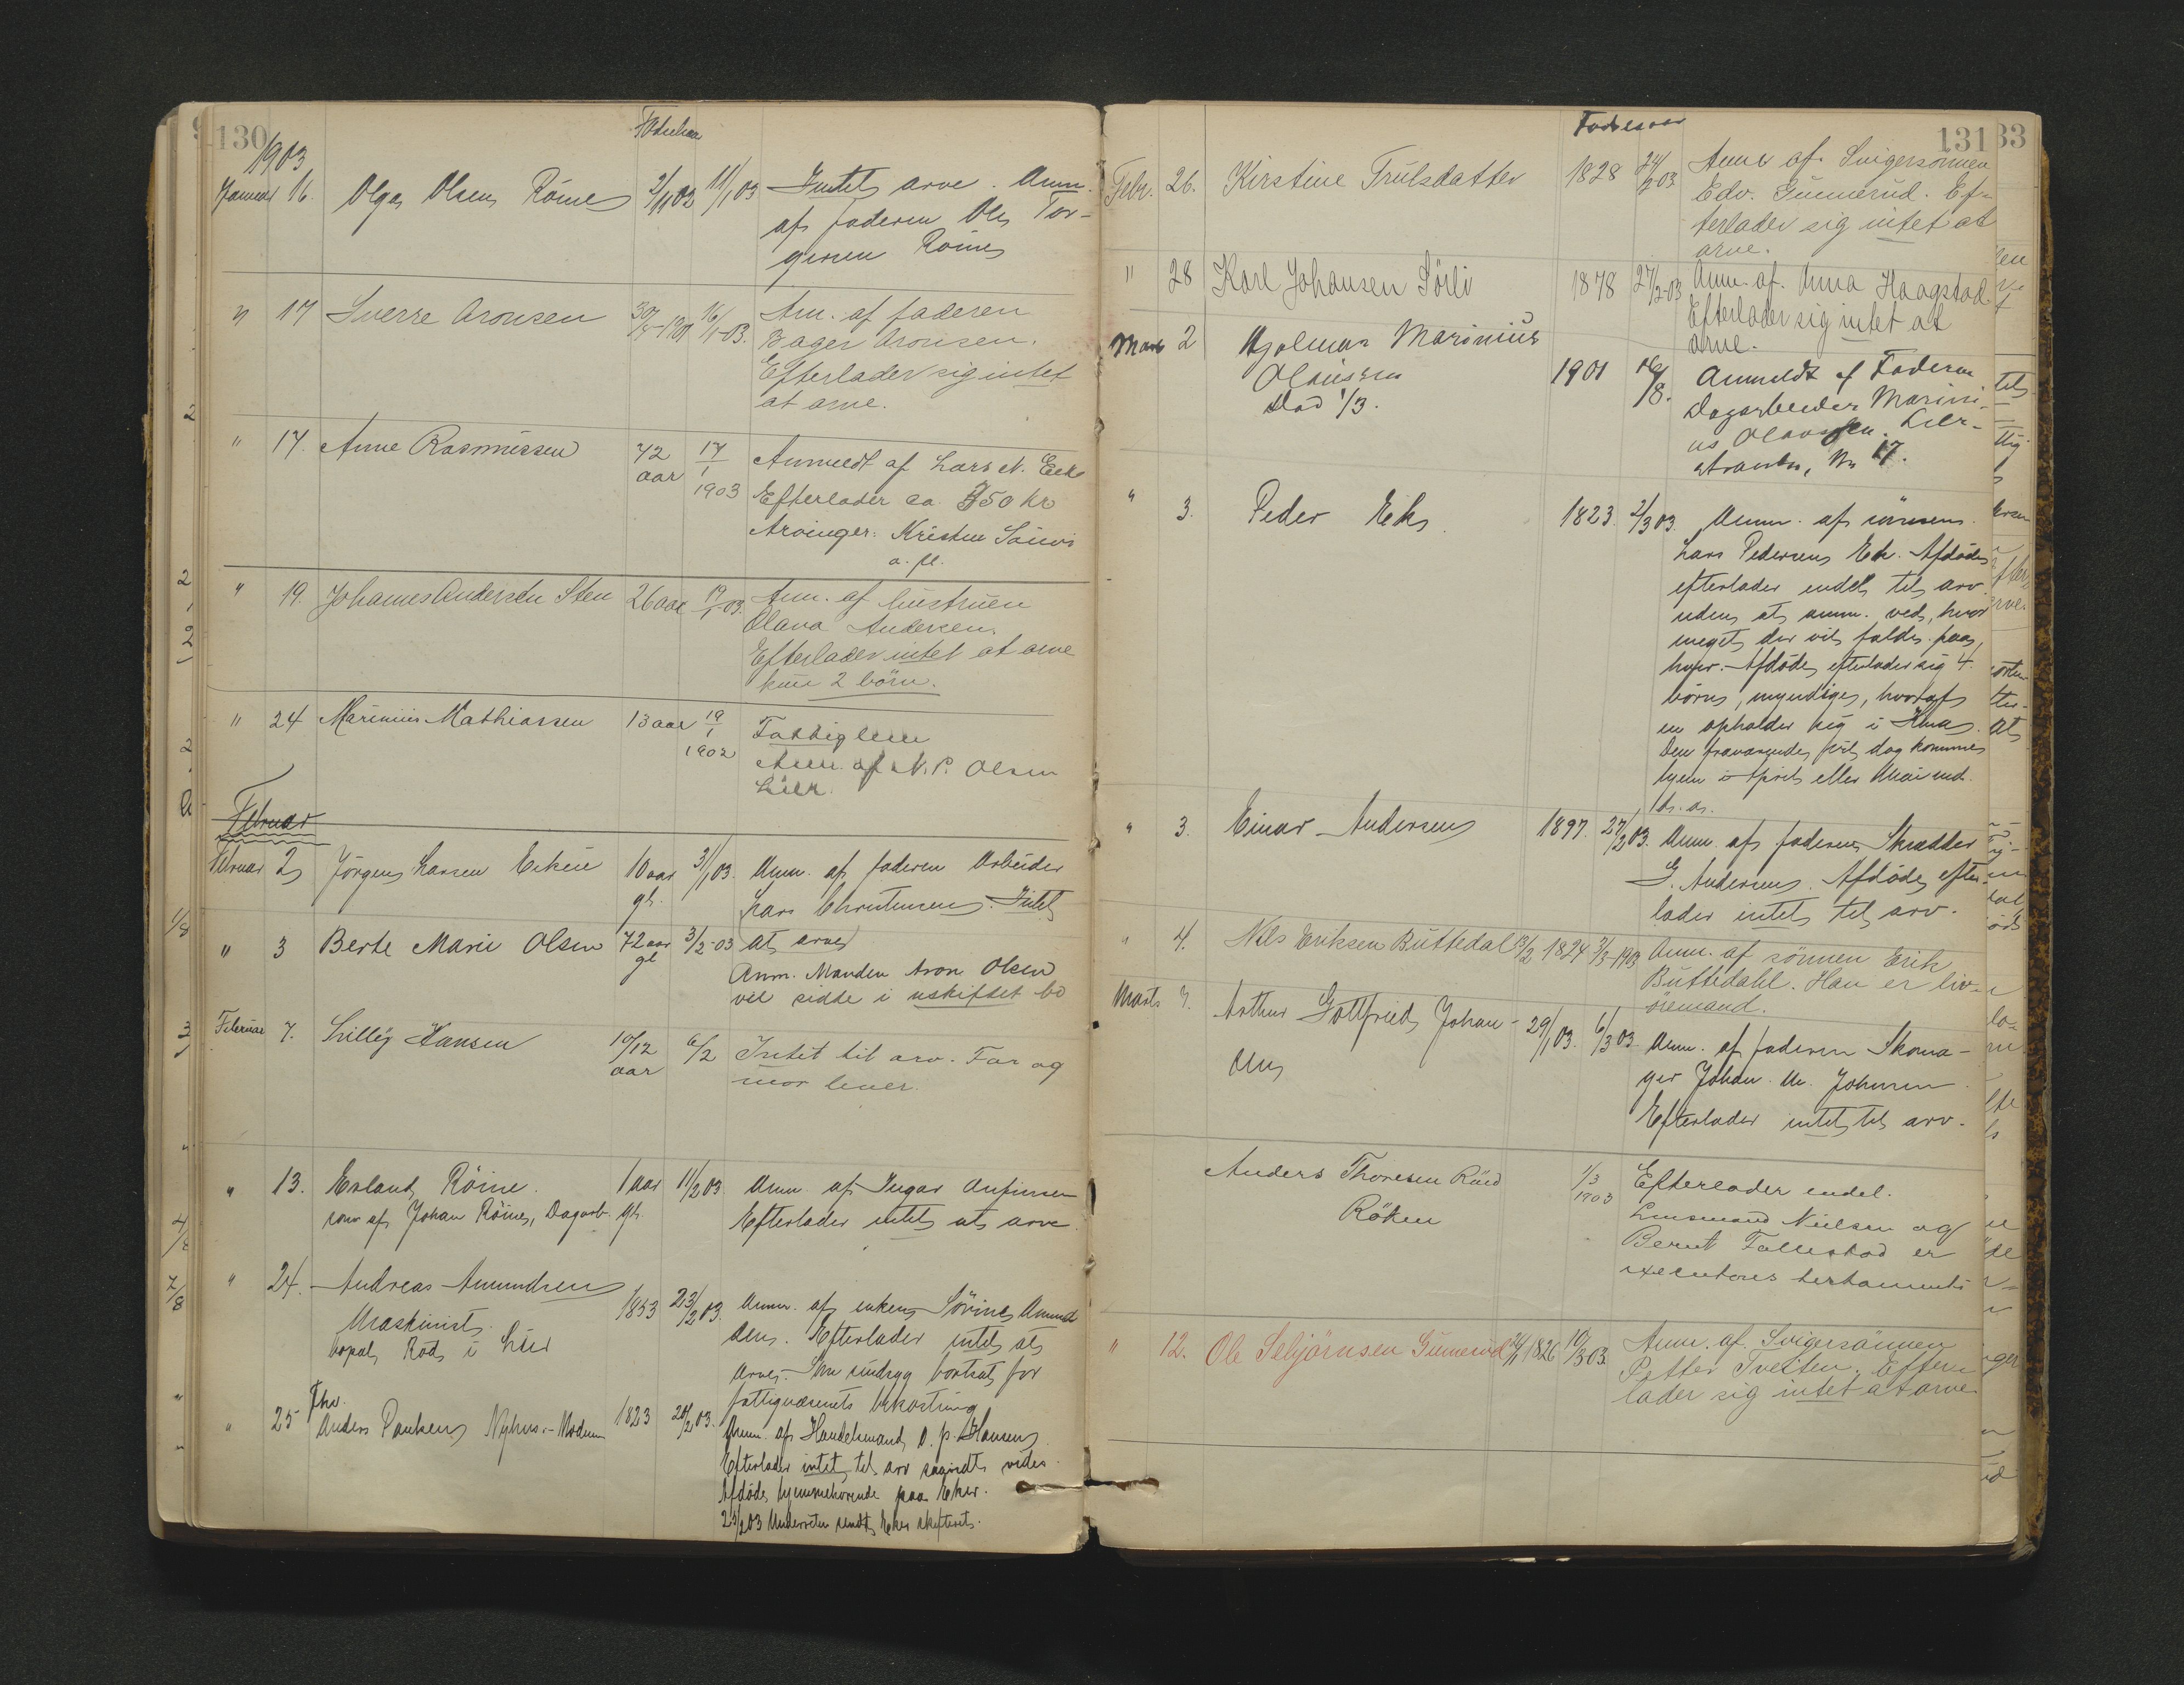 130
1903
Januar 16. Olga Olsen Röine 2/11 02 11/1 03 Intet arve. Anm.
af faderen Ole Tor-
gersen Röine
" 17 Sverre Aronsen 30/5-1901 16/1-03. Am. af faderen
Bager Aronsen.
Efterlader sig intet
at arve.
" 17. Anne Rasmussen 72 aar 17/1 1903 Anmeldt af Lars N. Eek
Efterlader ca 350 kr
Arvinger: Kristine
a. fl.
" 19. Johannes Andersen Sten 26 aar 19/1-03. Anm. af hustruen
Olava Andersen
Efterlader intet at arve
kun 2 börn.
" 24 Marinius Mathiassen 13 aar 19/1 1902 Fattiglem
Anm. af N. P. Olsen
Lier.
Februar
Februar 2 Jörgen Larsen 10 aar gl. 3/1 03. Anm. af faderen Arbeider
Lars Christensen. Intet
" 3 Berte Marie Olsen 72 aar gl 3/2-03 at arve
Anm. Manden Aron Olsen
vil sidde i uskiftet bo
Februar 7. Lilly Hansen 10/12 aar 6/2 Intet til arv. Far og
mor lever.
" 13. Erland Röine. 1 aar gl. 11/2 03 Anm. af Ingar Anfinsen
sön af Johan Röine, Dagarb. Efterlader intet at arve
" 24. Andreas Amundsen 1853 23/2 03. Anm. af enken Sörine Amund
Maskinist. sen. Efterlader intet at
bopæl Röd i Lier arve. Var sindsyg bortsat for
fattigvæsenets bekostning
" 25 Fhv.
Anders Paulsen Nyhus - Modum 1823 20/2 03. Anm. af Handelsmand O. P. Hansen
Efterlader intet til arv saavidt vides.
Afdöde hjemmehörende paa Eker.
23/2 03 Underretn sendt Eker skifteret.
131
33
Födselsaar
Febr. 26. Kirstine Trulsdatter 1828 24/2 03 Anm af. Svigersönnen
Edv. Gunnerud. Ef-
terlader sig intet at
arve.
" 28 Karl Johansen Sörli 1878 27/2-03 Anm. af. Anna Haagstad
Efterlader sig intet at
arve.
Marts 2 Hjalmar Marinius 1901 16/8. Anmeldt af Faderen
Olaussen Dagarbeider Marini-
Död 1/3. us Olaussen. Lier-
stranden, No 17.
" 3. Peder Ek. 1823. 2/3 03. Anm. af sönnen
Lars Pedersen Ek. Afdöde
efterlader endel til arv
uden at anm. ved, hvor
meget der vil falde paa
hver. Afdöde efterlader sig 4
börn, myndige, hvoraf
en opholder sig i Kina.
Den fraværende vil dog komme
hjem i April eller Mai md.
d. a.
" 3. Einar Andersen 1897. 27/2 03. Anm. af faderen Skrædder
G. Andersen. Afdöde efter-
lader intet til arv.
" 4. Nils Eriksen Buttedal 13/2 1824 3/3-1903 Anm. af sönnen Erik
Buttedahl. Han er liv-
öremand.
Marts 7. Arthur Gottfried Johan- 29/1 03. 6/3 03 Anm. af faderen Skoma-
sen ger Johan M. Johnsen
Efterlader intet til arv.
Anders Thoresen 1/3 1903 Efterlader endel.
Röken Lensmand Nielsen og
Bernt Follestad er
executores testamenti
" 12. Ole Sebjörnsen Gunnerud 1826 10/3 03. Anm. af. Svigersönnen
Petter Tveiten. Efter-
lader sig intet at arve